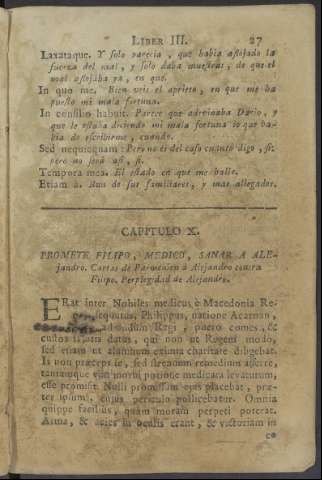 LIBER III. 27
Laxataque. Y solo parecia, que habia aflojado la
fuerza del mal, y solo daba muestras, de que el
mal aflojaba ya, en que.
In quo me. Bien veis el aprieto, en que me ha
puesto mi mala fortuna.
In consilio habuit. Parece que adivinaba Dario, y
que le estaba diciendo mi mala fortuna lo que ha-
bia de escribirme, cuando.
Sed nequicquam: Pero no es del caso cuanto digo, si:
pero no será así, si.
Tempora mea. El estado en que me halle.
Etiam à. Aun de sus familiares, y mas allegados.
CAPITULO X.
PROMETE FILIPO, MEDICO, SANAR A ALE-
jandro. Cartas de Parmenion á Alejandro contra
Filipo. Perplegidad de Alejandro.
ERat inter Nobiles medicus è Macedonia Re-
sequutus, Philippus, natione Acarnan,
admodum Regi, puero comes, &
custos salutis datus, qui non ut Regem modo,
sed etiam ut alumnum eximia charitate diligebat.
Is non præceps se, sed strenuum remedium afferre,
tantamque vim morbi potione medicata levaturum,
esse promisit. Nulli promissum ejus placebat, præ-
ter ipsum, cujus periculo pollicebatur. Omnia
quippe facilius, quàm moram perpeti poterat.
Arma, & acies in oculis erant, & victoriam in
eo